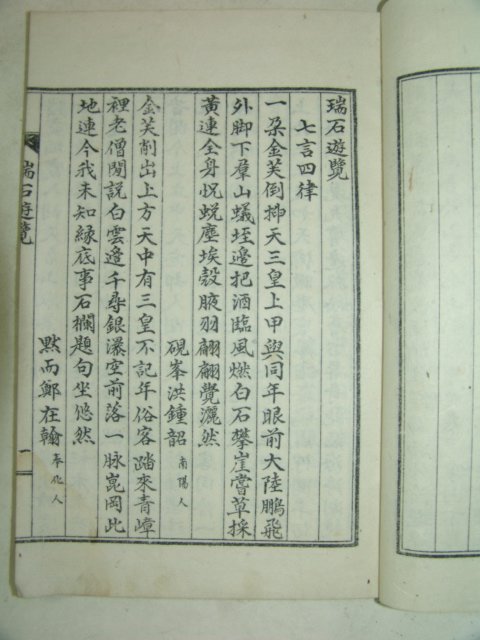 瑞石遊覽
七言四律
一朶金芙倒揷天三皇上甲與同年眼前大陸鵬飛
外脚下羣山蟻垤邊把酒臨風燃白石攀崖嘗草採
黃連全身怳蛻塵埃殼腋羽翩翩覺灑然
硯峯洪鍾韶 南陽人
金芙削出上方天中有三皇不記年俗客踏來青嶂
裡老僧閒說白雲邊千尋銀瀑空前落一脉崑岡此
地連今我未知緣底事石欄題句坐悠然
默而鄭在翰 奉化人
瑞石遊覽
一